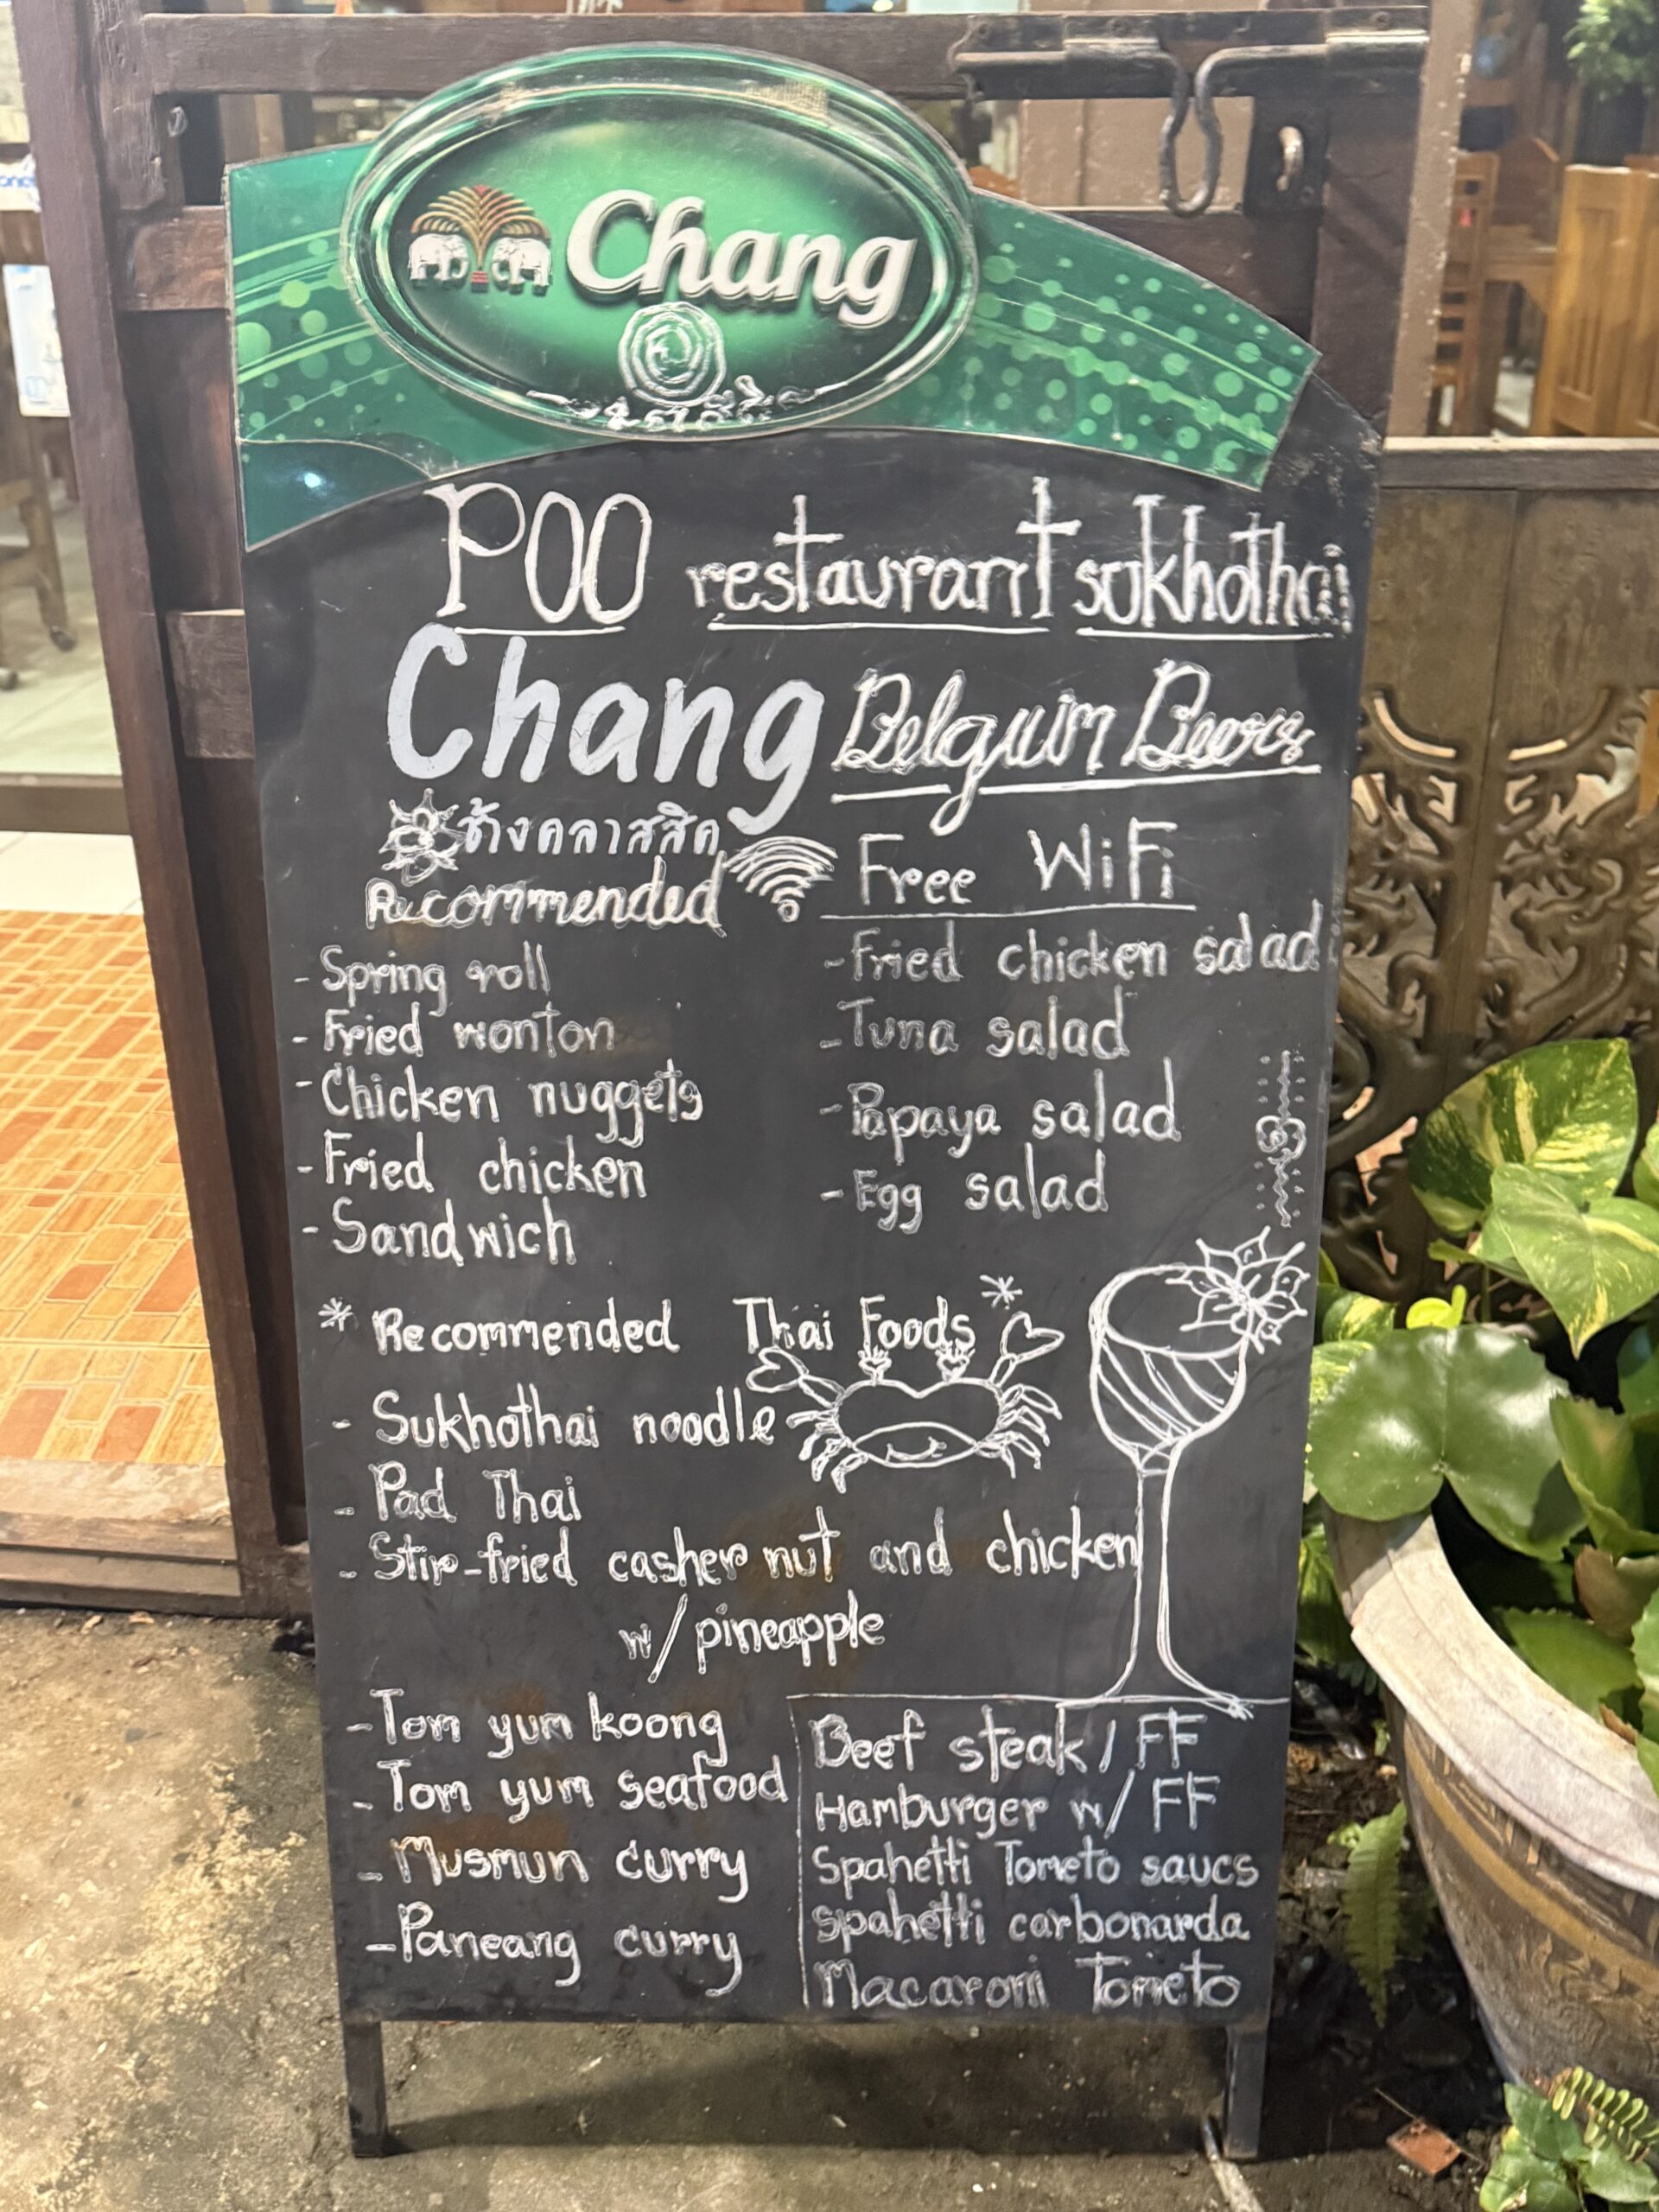 Chang
POO restaurant sukhothai
Chang Belguim Beers
ช้างคลาสสิค
Recommended
Free WiFi
- Spring roll
- Fried wonton
- Chicken nuggets
- Fried chicken
- Sandwich
- Fried chicken salad
- Tuna salad
- Papaya salad
- Egg salad
* Recommended Thai Foods *
- Sukhothai noodle
- Pad Thai
- Stir-fried casher nut and chicken
w/pineapple
- Tom yum koong
- Tom yum seafood
- Musmun curry
- Paneang curry
Beef steak / FF
Hamburger w/ FF
Spahetti Tometo saucs
Spahetti carbonarda
Macaroni Tometo